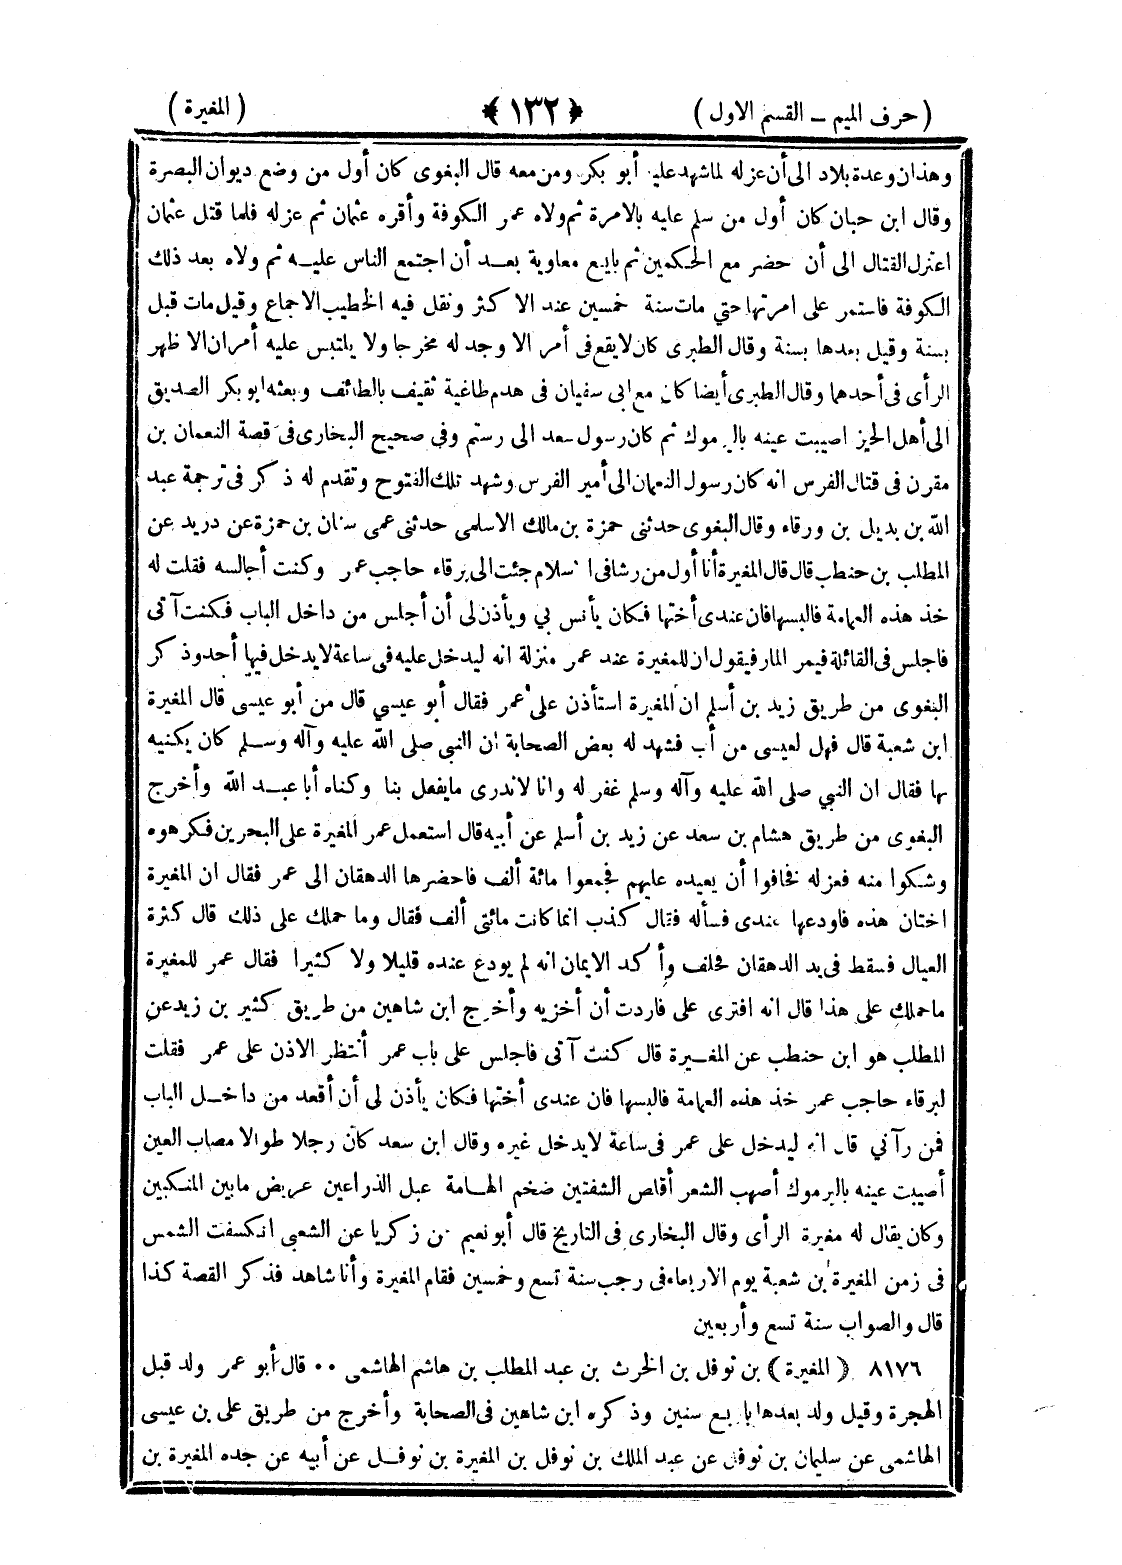 ( حرف الميم ــ القسم الاول ) ﴿ ١٣٢ ﴾ ( المغيرة )
وهذان وعدة بلاد الى أن عزله لما شهد عليه أبو بكر ومن معه قال البغوى كان أول من وضع ديوان البصرة
وقال ابن حبان كان أول من سلم عليه بالامرة ثم ولاه عمر الكوفة وأقره عثمان ثم عزله فلما قتل عثمان
اعتزل القتال الى أن حضر مع الحكمين ثم بايع معاوية بعد أن اجتمع الناس عليه ثم ولاه بعد ذلك
الكوفة فاستمر على امرتها حتي مات سنة خمسين عند الاكثر ونقل فيه الخطيب الاجماع وقيل مات قبل
بسنة وقيل بعدها بسنة وقال الطبرى كان لا يقع فى أمر الا وجد له مخرجا ولا يلتبس عليه أمران الا ظهر
الرأى فى أحدهما وقال الطبرى أيضا كان مع ابى سفيان فى هدم طاغية ثقيف بالطائف وبعثه ابو بكر الصديق
الى أهل الحيز اصيبت عينه باليرموك ثم كان رسول سعد الى رستم وفي صحيح البخارى فى قصة النعمان بن
مقرن فى قتال الفرس انه كان رسول النعمان الى أمير الفرس وشهد تلك الفتوح وتقدم له ذكر فى ترجمة عبد
الله بن بديل بن ورقاء وقال البغوى حدثنى حمزة بن مالك الاسلمى حدثنى عمى سنان بن حمزة عن دريد عن
المطلب بن حنطب قال قال المغيرة أنا أول من رشا فى الاسلام جئت الى يرقاء حاجب عمر وكنت أجالسه فقلت له
خذ هذه العمامة فالبسها فان عندى أختها فكان يأنس بي ويأذن لى أن أجلس من داخل الباب فكنت آتى
فاجلس فى القائلة فيمر المار فيقول ان للمغيرة عند عمر منزلة انه ليدخل عليه فى ساعة لا يدخل فيها أحد وذكر
البغوى من طريق زيد بن أسلم ان المغيرة استأذن على عمر فقال أبو عيسي قال من أبو عيسى قال المغيرة
ابن شعبة قال فهل لعيسى من أب فشهد له بعض الصحابة ان النبي صلى الله عليه وآله وسلم كان يكنيه
بها فقال ان النبي صلى الله عليه وآله وسلم غفر له وانا لا ندرى ما يفعل بنا وكناه أبا عبد الله وأخرج
البغوى من طريق هشام بن سعد عن زيد بن أسلم عن أبيه قال استعمل عمر المغيرة على البحرين فكرهوه
وشكوا منه فعزله فخافوا أن يعيده عليهم فجمعوا مائة ألف فاحضرها الدهقان الى عمر فقال ان المغيرة
اختان هذه فاودعها عندى فسأله فقال كذب انما كانت مائتى ألف فقال وما حملك على ذلك قال كثرة
العيال فسقط فى يد الدهقان فحلف وأكد الايمان انه لم يودع عنده قليلا ولا كثيرا فقال عمر للمغيرة
ما حملك على هذا قال انه افترى على فاردت أن أخزيه وأخرج ابن شاهين من طريق كثير بن زيد عن
المطلب هو ابن حنطب عن المغيرة قال كنت آتى فاجلس على باب عمر أنتظر الاذن على عمر فقلت
ليرقاء حاجب عمر خذ هذه العمامة فالبسها فان عندى أختها فكان يأذن لى أن أقعد من داخل الباب
فمن رآني قال انه ليدخل على عمر فى ساعة لا يدخل غيره وقال ابن سعد كان رجلا طوالا مصاب العين
أصيبت عينه باليرموك أصهب الشعر أقلص الشفتين ضخم الهامة عبل الذراعين عريض ما بين المنكبين
وكان يقال له مغيرة الرأى وقال البخارى فى التاريخ قال أبو نعيم عن زكريا عن الشعبى انكسفت الشمس
فى زمن المغيرة بن شعبة يوم الاربعاء فى رجب سنة تسع وخمسين فقام المغيرة وأنا شاهد فذكر القصة كذا
قال والصواب سنة تسع وأربعين
٨١٧٦ ( المغيرة ) بن نوفل بن الحرث بن عبد المطلب بن هاشم الهاشمى ٠٠ قال أبو عمر ولد قبل
الهجرة وقيل ولد بعدها باربع سنين وذكره ابن شاهين فى الصحابة وأخرج من طريق على بن عيسى
الهاشمى عن سليمان بن نوفل عن عبد الملك بن نوفل بن المغيرة بن نوفل عن أبيه عن جده المغيرة بن